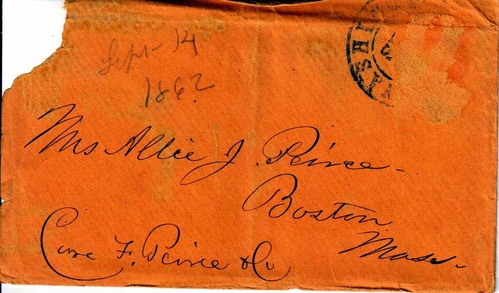 Sept - 14
1862
WASHI
Mrs Allie J. Peirce -
Boston
Mass -
Care F. Peirce & Co